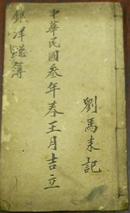 中華民國叁年春王月吉立
劉馬来記
銀洋謄簿